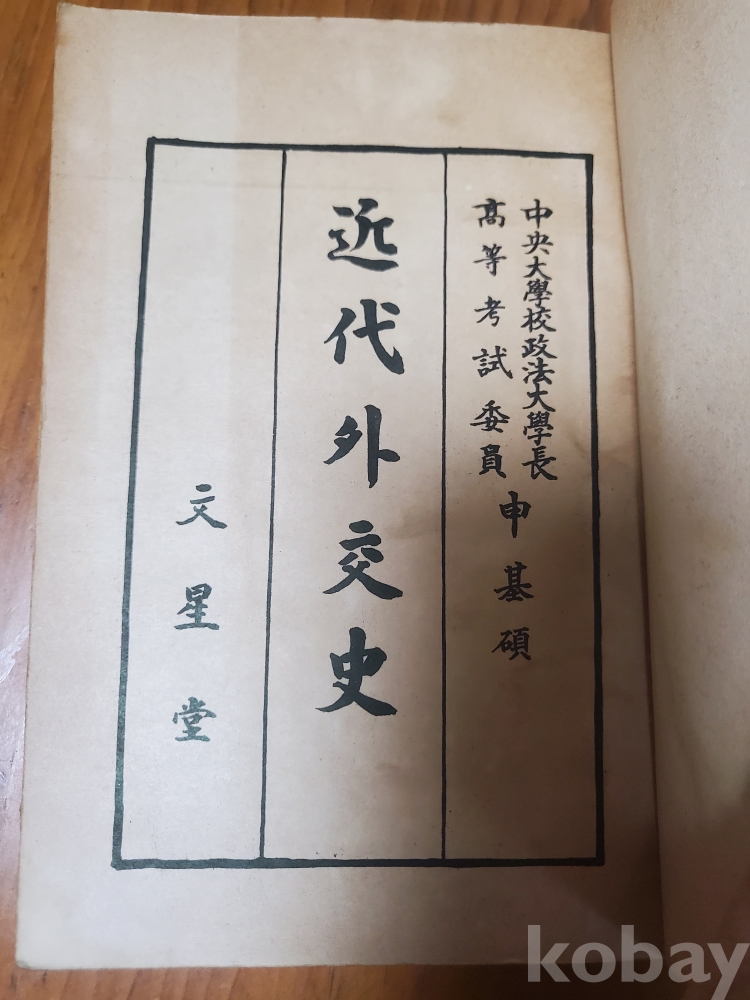 中央大學校政法大學長
高等考試委員
申基碩
近代外交史
文星堂
kobay